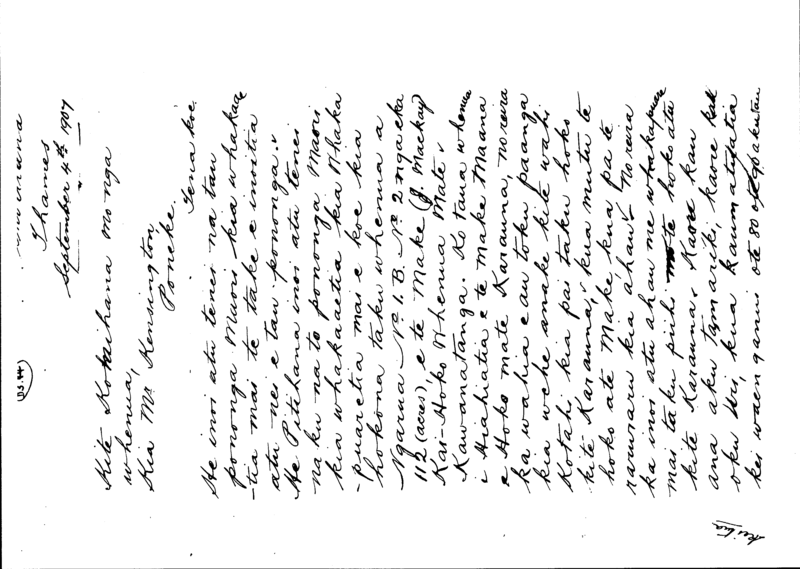 (DS.44)
Thames
September 4th 1907
Kite Komihana mo nga
whenua,
Kia Mr Kensington,
Poneke.
Tena koe.
He inoi atu tenei na tau
pononga Maori kia whakaae
-tia mai te take e inoitia
atu nei e tau pononga.
He Pitihana inoi atu tenei
na ku na to pononga Maori
kia whakaaetia kia Whaka
-puaretia mai e koe kia
hokona taku whenua a
Ngarua No 1.B. No 2 nga eka
112 (acres), e te Make (J. Mackay)
Kai-Hoko Whenua Mate
Kawanatanga. Ko taua whenua
i Hiahiatia e te Make Maana
e Hoko mate Karauna, no reira
ka wahia e au toku paanga
kia wehe anake kite wahi
Kotahi kia pai taku hoko
kite Karauna, kia mutu te
hoko ate Make kua pa te
raruraru kia ahau. No reira
ka inoi atu ahau me whakapuare
mai taku piihi te hoko atu
kite Karauna. Kaore kau
ana aku tamariki, kaore kau
oku Iwi, kua kaumatuatia
kei waenganui ote 80 90 aku tau
kei tua